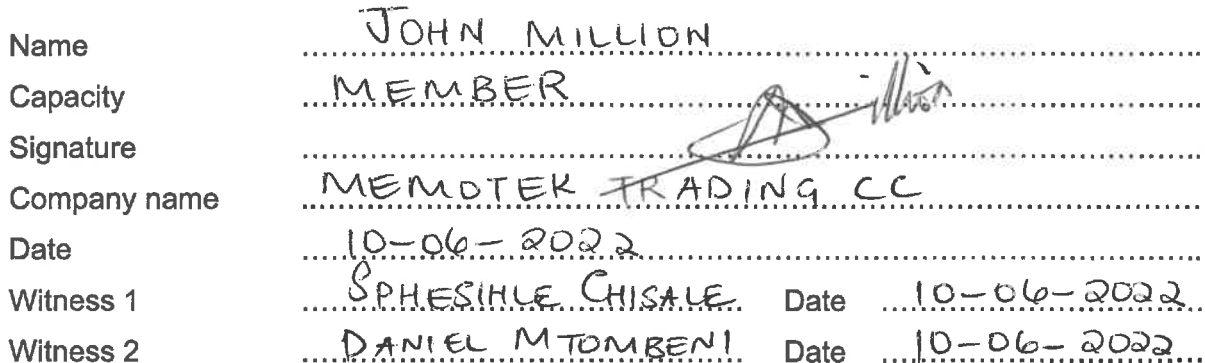 Name JOHN MILLION
Capacity MEMBER
Signature
Company name MEMOTEK TRADING CC
Date 10-06-2022
Witness 1 SPHESIHLE CHISALE Date 10-06-2022
Witness 2 DANIEL MTOMBENI Date 10-06-2022